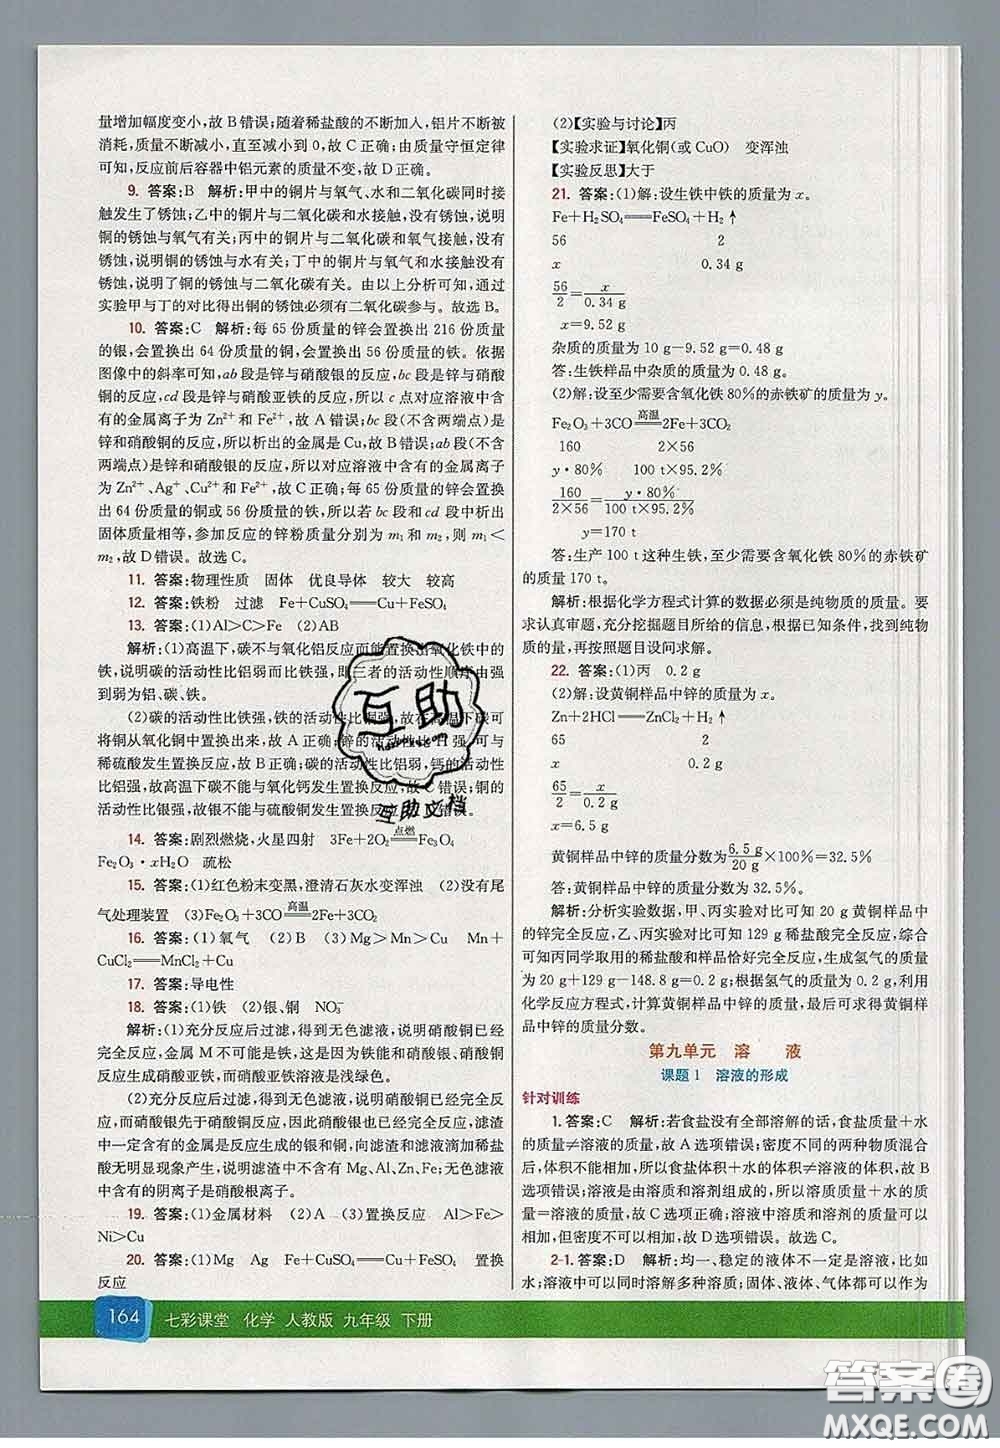 量增加幅度变小,故 B 错误;随着稀盐酸的不断加入,铝片不断被
消耗,质量不断减小,直至减小到 0,故 C 正确;由质量守恒定律
可知,反应前后容器中铝元素的质量不变,故 D 正确。
9. 答案:B 解析:甲中的铜片与氧气、水和二氧化碳同时接
触发生了锈蚀;乙中的铜片与二氧化碳和水接触,没有锈蚀,说明
铜的锈蚀与氧气有关;丙中的铜片与二氧化碳和氧气接触,没有
锈蚀,说明铜的锈蚀与水有关;丁中的铜片与水和氧气接触,没有
锈蚀,说明了铜的锈蚀与二氧化碳有关。由以上分析可知,通过
实验甲与丁的对比得出铜的锈蚀必须有二氧化碳参与。故选 B。
10. 答案:C 解析:每 65 份质量的锌会置换出 216 份质量
的银,会置换出 64 份质量的铜,会置换出 56 份质量的铁。依据
图像中的斜率可知,ab 段是锌与硝酸银的反应,bc 段是锌与硝酸
铜的反应,cd 段是锌与硝酸亚铁的反应,所以 c 点对应溶液中含
有的金属离子为 Zn²⁺ 和 Fe²⁺,故 A 错误;bc 段(不含两端点)是
锌和硝酸铜的反应,所以析出的金属是 Cu,故 B 错误;ab 段(不含
两端点)是锌和硝酸银的反应,所以对应溶液中含有的金属离子
为 Zn²⁺、Ag⁺、Cu²⁺ 和 Fe²⁺,故 C 正确;每 65 份质量的锌会置换出
64 份质量的铜或 56 份质量的铁,所以若 bc 段和 cd 段中析出的
固体质量相等,参加反应的锌粉质量分别为 m₁ 和 m₂,则 m₁<
m₂,故 D 错误。故选 C。
11. 答案:物理性质 固体 优良导体 较大 较高
12. 答案:铁粉 过滤 Fe+CuSO₄══Cu+FeSO₄
13. 答案:(1)Al>C>Fe (2)AB
解析:(1)高温下,碳不与氧化铝反应而能置换出氧化铁中的
铁,说明碳的活动性比铝弱而比铁强,即三者的活动性顺序由强
到弱为铝、碳、铁。
(2)碳的活动性比铁强,铁的活动性比铜强,故在高温下碳可
将铜从氧化铜中置换出来,故 A 正确;锌的活动性比 H 强,可与
稀硫酸发生置换反应,故 B 正确;碳的活动性比铝弱,钙的活动性比
铝强,故高温下碳不能与氧化钙发生置换反应,故 C 错误;铜的
活动性比银强,故银不能与硫酸铜发生置换反应,故 D 错误。
14. 答案:剧烈燃烧,火星四射 3Fe+2O₂ 点燃══ Fe₃O₄
Fe₂O₃·xH₂O 疏松
15. 答案:(1)红色粉末变黑,澄清石灰水变浑浊 (2)没有尾
气处理装置 (3)Fe₂O₃+3CO 高温══ 2Fe+3CO₂
16. 答案:(1)氧气 (2)B (3)Mg>Mn>Cu Mn+
CuCl₂══MnCl₂+Cu
17. 答案:导电性
18. 答案:(1)铁 (2)银、铜 NO₃⁻
解析:(1)充分反应后过滤,得到无色滤液,说明硝酸铜已经
完全反应,金属 M 不可能是铁,因为铁能和硝酸银、硝酸铜发生
反应生成硝酸亚铁,而硝酸亚铁溶液是浅绿色。
(2)充分反应后过滤,得到无色滤液,说明硝酸铜已经完全反
应,而硝酸银先于硝酸铜反应,因此硝酸银也已经完全反应,滤渣
中一定含有的金属是反应生成的银和铜,向滤渣和滤液滴加稀盐酸
均无明显现象产生,说明不含有 Mg、Al、Zn、Fe;无色滤液中一定
含有的阴离子是硝酸根离子。
19. 答案:(1)金属材料 (2)A (3)置换反应 Al>Fe>
Ni>Cu
20. 答案:(1)Mg Ag Fe+CuSO₄══Cu+FeSO₄ 置换
反应
(2)【实验与讨论】丙
【实验求证】氧化铜(或 CuO) 变浑浊
【实验反思】大于
21. 答案:(1)解:设生铁中铁的质量为 x。
Fe+H₂SO₄══FeSO₄+H₂↑
56 2
x 0.34 g
56/2=x/0.34 g
x=9.52 g
杂质的质量为 10 g−9.52 g=0.48 g
答:生铁样品中杂质的质量为 0.48 g。
(2)解:设至少需要含氧化铁 80%的赤铁矿的质量为 y。
Fe₂O₃+3CO 高温══ 2Fe+3CO₂
160 2×56
y·80% 100 t×95.2%
160/2×56=y·80%/100 t×95.2%
y=170 t
答:生产 100 t 这种生铁,至少需要含氧化铁 80%的赤铁矿
的质量 170 t。
解析:根据化学方程式计算的数据必须是纯物质的质量。要
求认真审题,充分挖掘题目所给的信息,根据已知条件,找到纯物
质的量,再按照题目设问求解。
22. 答案:(1)丙 0.2 g
(2)解:设黄铜样品中锌的质量为 x。
Zn+2HCl══ZnCl₂+H₂↑
65 2
x 0.2 g
65/2=x/0.2 g
x=6.5 g
黄铜样品中锌的质量分数为6.5 g/20 g×100%=32.5%
答:黄铜样品中锌的质量分数为 32.5%。
解析:分析实验数据,甲、丙实验对比可知 20 g 黄铜样品中
的锌完全反应,乙、丙实验对比可知 129 g 稀盐酸完全反应,综合
可知丙同学取用的稀盐酸和样品恰好完全反应,生成氢气的质
量为 20 g+129 g−148.8 g=0.2 g;根据氢气的质量为 0.2 g,利用
化学反应方程式,计算黄铜样品中锌的质量,最后可求得黄铜样
品中锌的质量分数。
第九单元 溶 液
课题 1 溶液的形成
针对训练
1. 答案:C 解析:若食盐没有全部溶解的话,食盐质量+水
的质量≠溶液的质量,故 A 选项错误;密度不同的两种物质混合
后,体积不能相加,所以食盐体积+水的体积≠溶液的体积,故 B
选项错误;溶液是由溶质和溶剂组成的,所以溶质质量+水的质
量=溶液的质量,故 C 选项正确;溶液中溶质和溶剂的质量可以
相加,但密度不能相加,故 D 选项错误。故选 C。
2-1. 答案:D 解析:均一、稳定的液体不一定是溶液,比如
水;溶液中可以同时溶解多种溶质;固体、液体、气体都可以作为
互助
互助文档
164 七彩课堂 化学 人教版 九年级 下册
答案圈
MXQE.COM